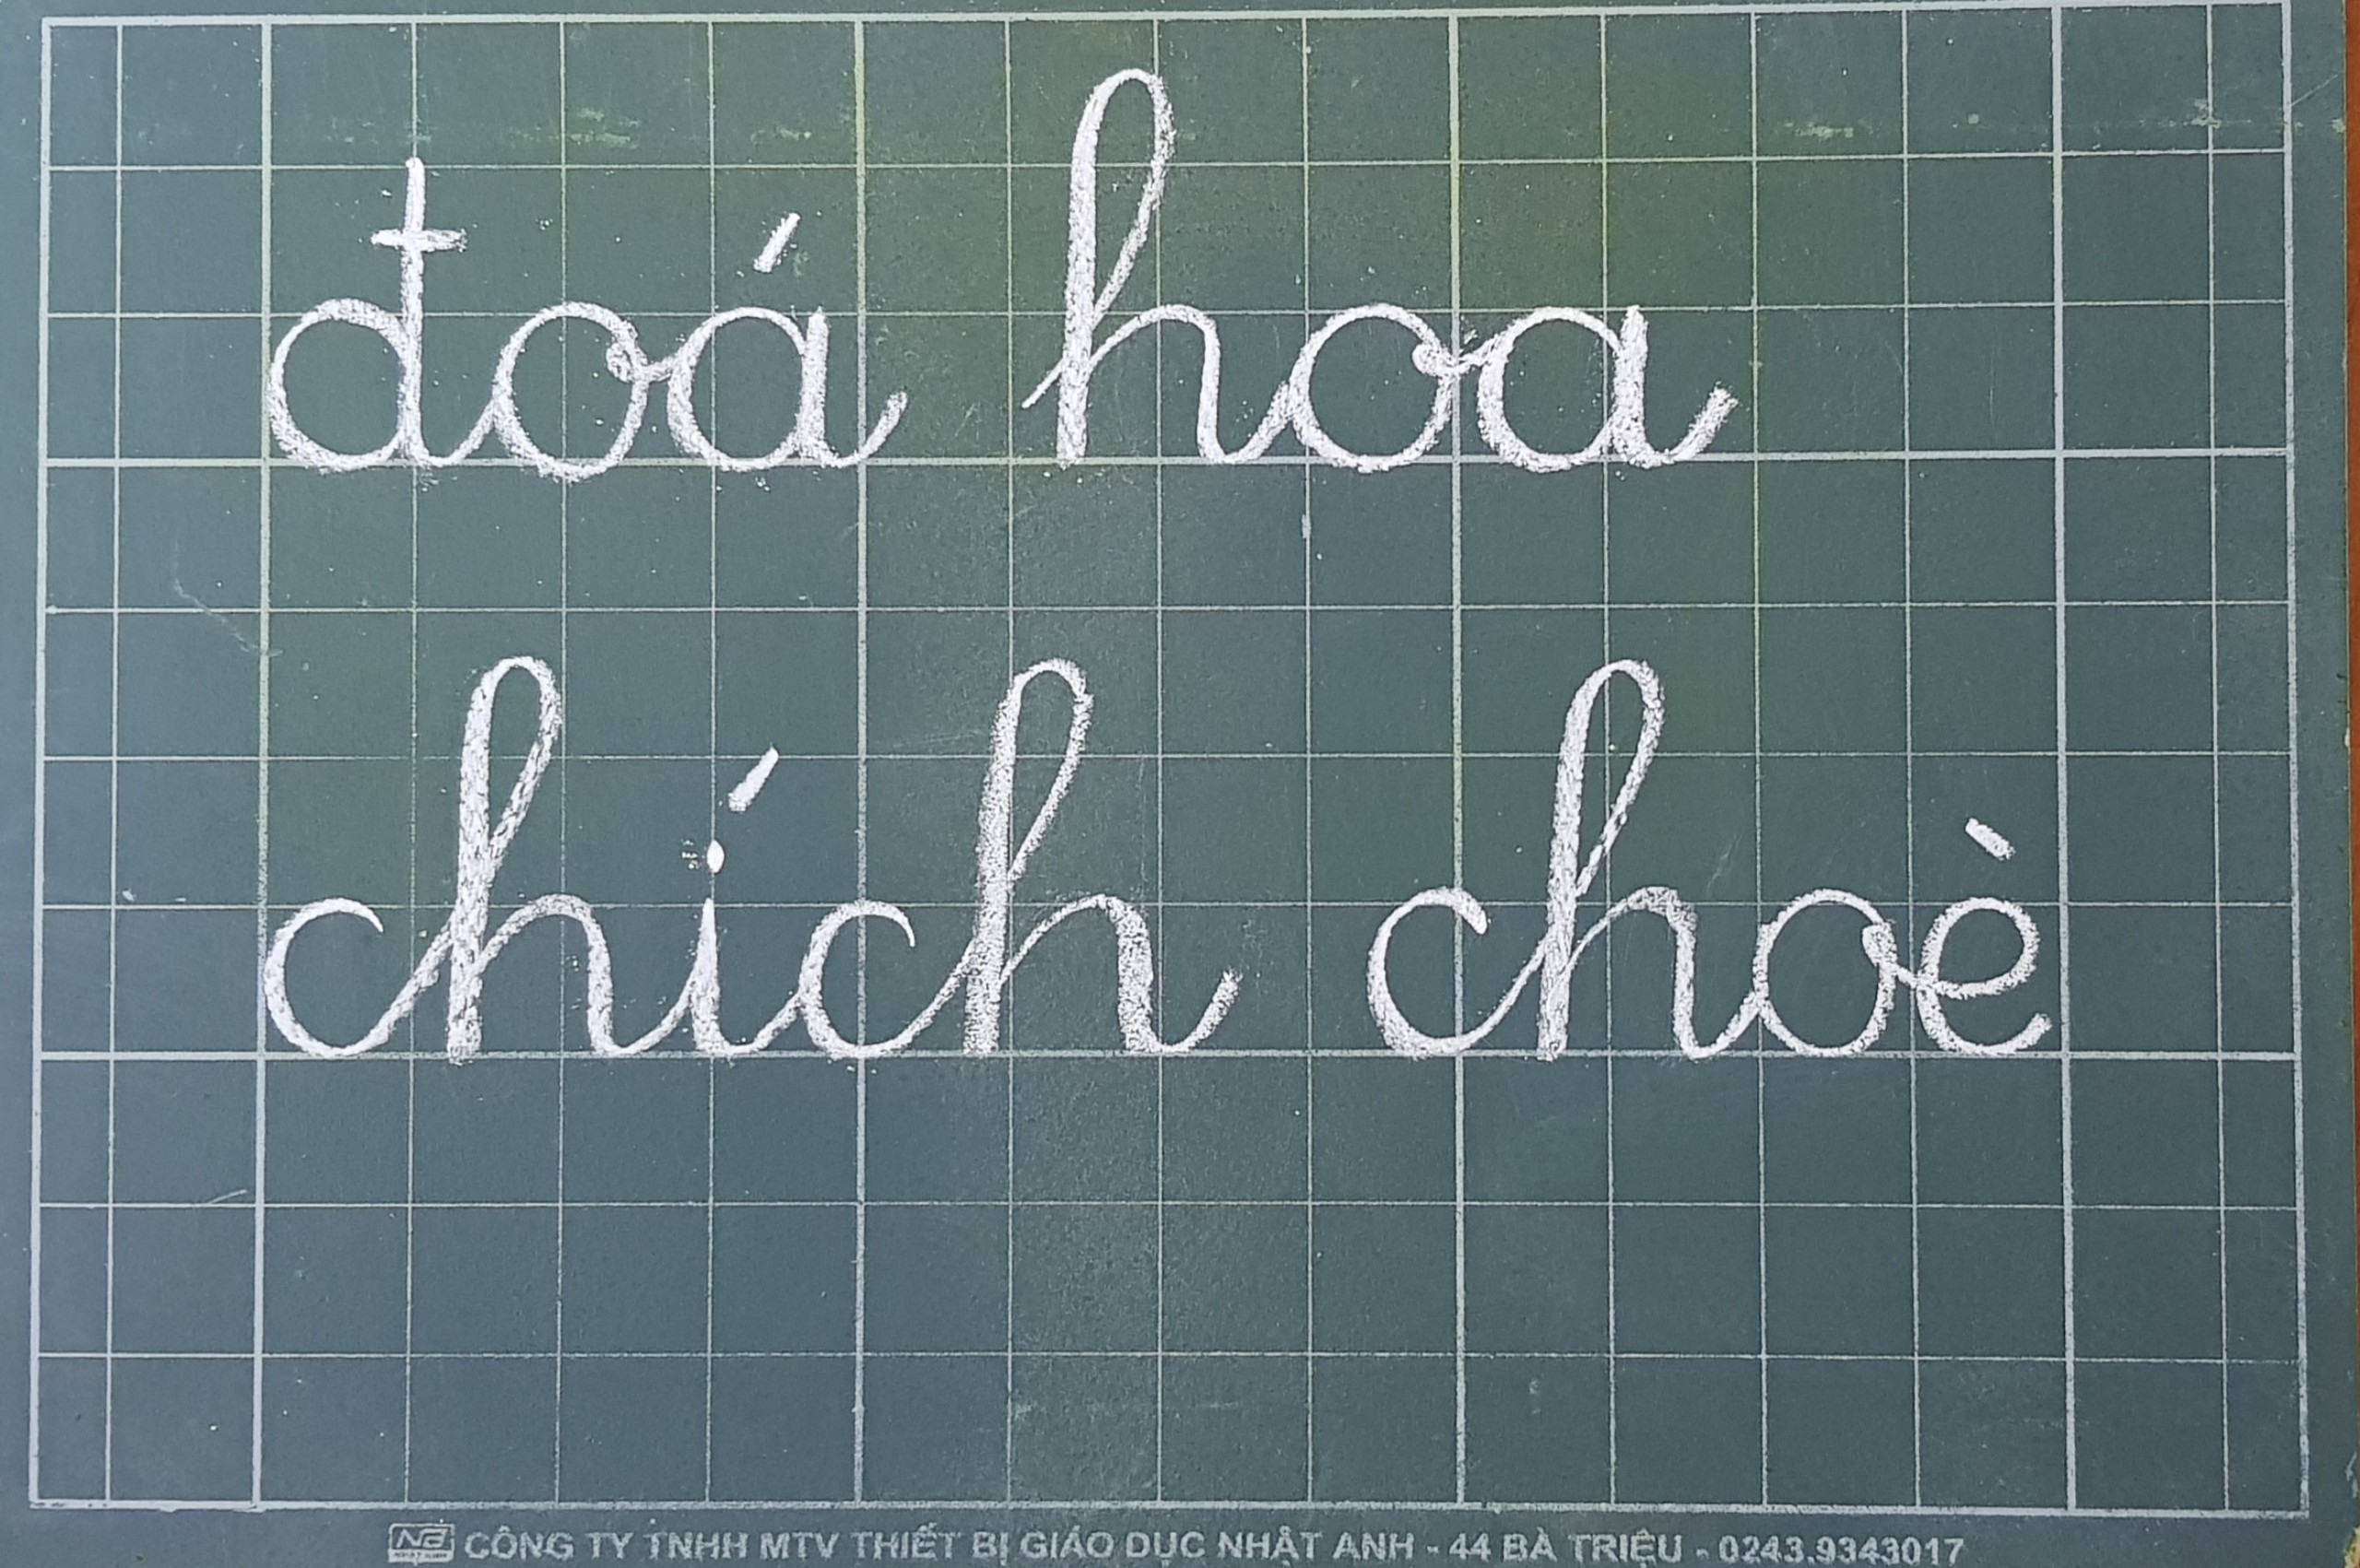 đoá hoa
chích choè
NA CÔNG TY TNHH MTV THIẾT BỊ GIÁO DỤC NHẬT ANH - 44 BÀ TRIỆU - 0243.9343017